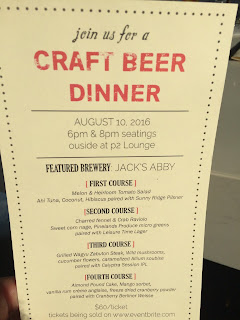 join us for a
CRAFT BEER
DINNER
AUGUST 10, 2016
6pm & 8pm seatings
ouside at p2 Lounge
FEATURED BREWERY: JACK'S ABBY
[ FIRST COURSE ]
Melon & Heirloom Tomato Salad
Ahi Tuna, Coconut, Hibiscus paired with Sunny Ridge Pilsner
[SECOND COURSE ]
Charred Fennel & Crab Raviolo
Sweet corn nage, Pinelands Produce micro greens
paired with Leisure Time Lager
[THIRD COURSE ]
Grilled Wagyu Zabuton Steak, Wild mushrooms,
cucumber flowers, caramelized Allium soubise
paired with Calyztra Session IPL
[FOURTH COURSE ]
Almond Pound Cake, Mango sorbet,
vanilla corn crème anglaise, freeze dried cranberry powder
paired with Cranberry Berliner Weisse
$60/ticket
tickets being sold on www.eventbrite.com